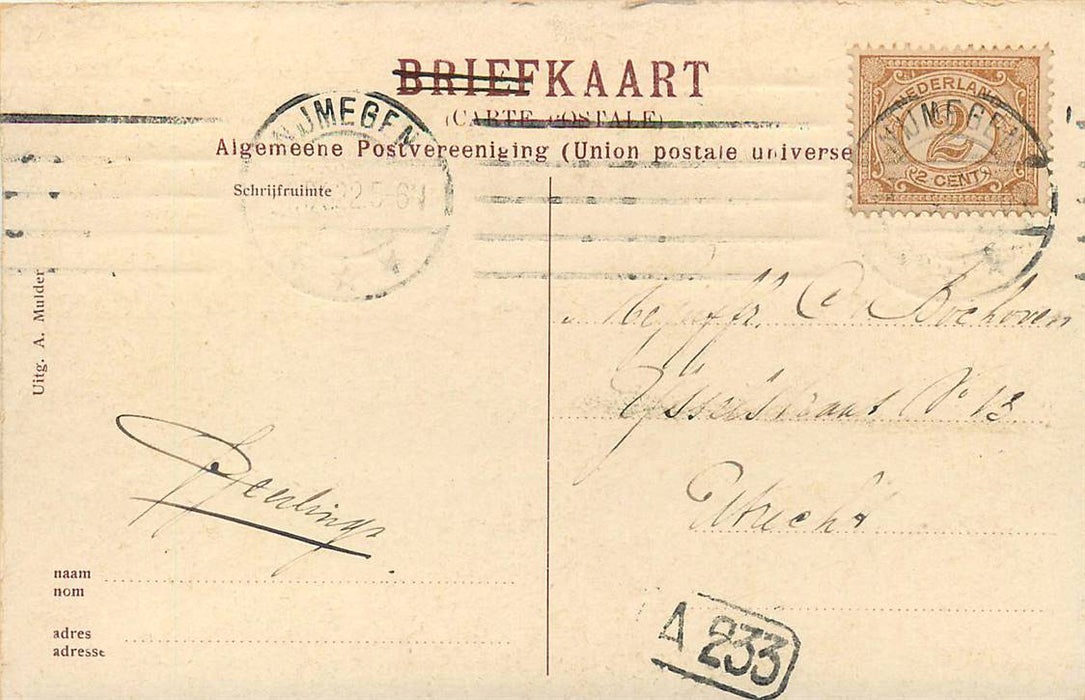 BRIEFKAART
(CARTE POSTALE)
Algemeene Postvereeniging (Union postale universe
NEDERLAND
2
2 CENT
NIJMEGEN
22.5-6N
NIJMEGEN
Schrijfruimte
Uitg. A. Mulder
Mejuffr. C v Bochoven
IJsselstraat No 13
Utrecht
Geerlings
naam
nom
adres
adresse
A 233